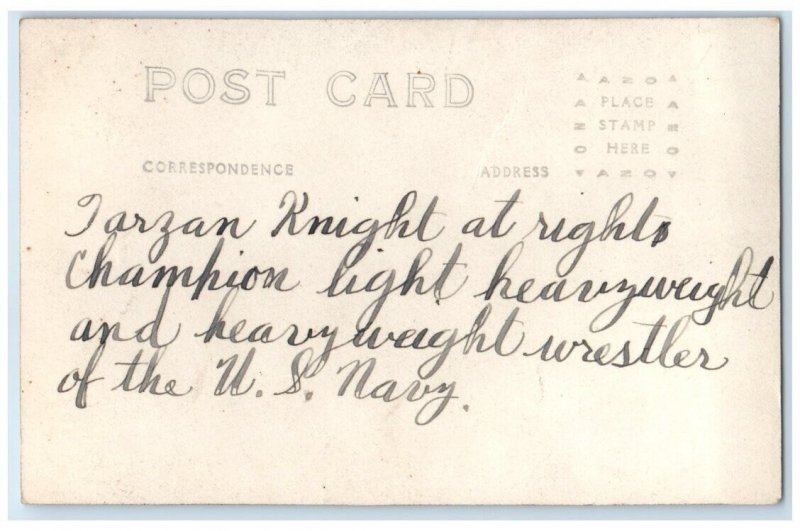 POST CARD
AZO
PLACE
STAMP
HERE
AZO
CORRESPONDENCE
ADDRESS
Tarzan Knight at right
Champion light heavyweight
and heavyweight wrestler
of the U. S. Navy.